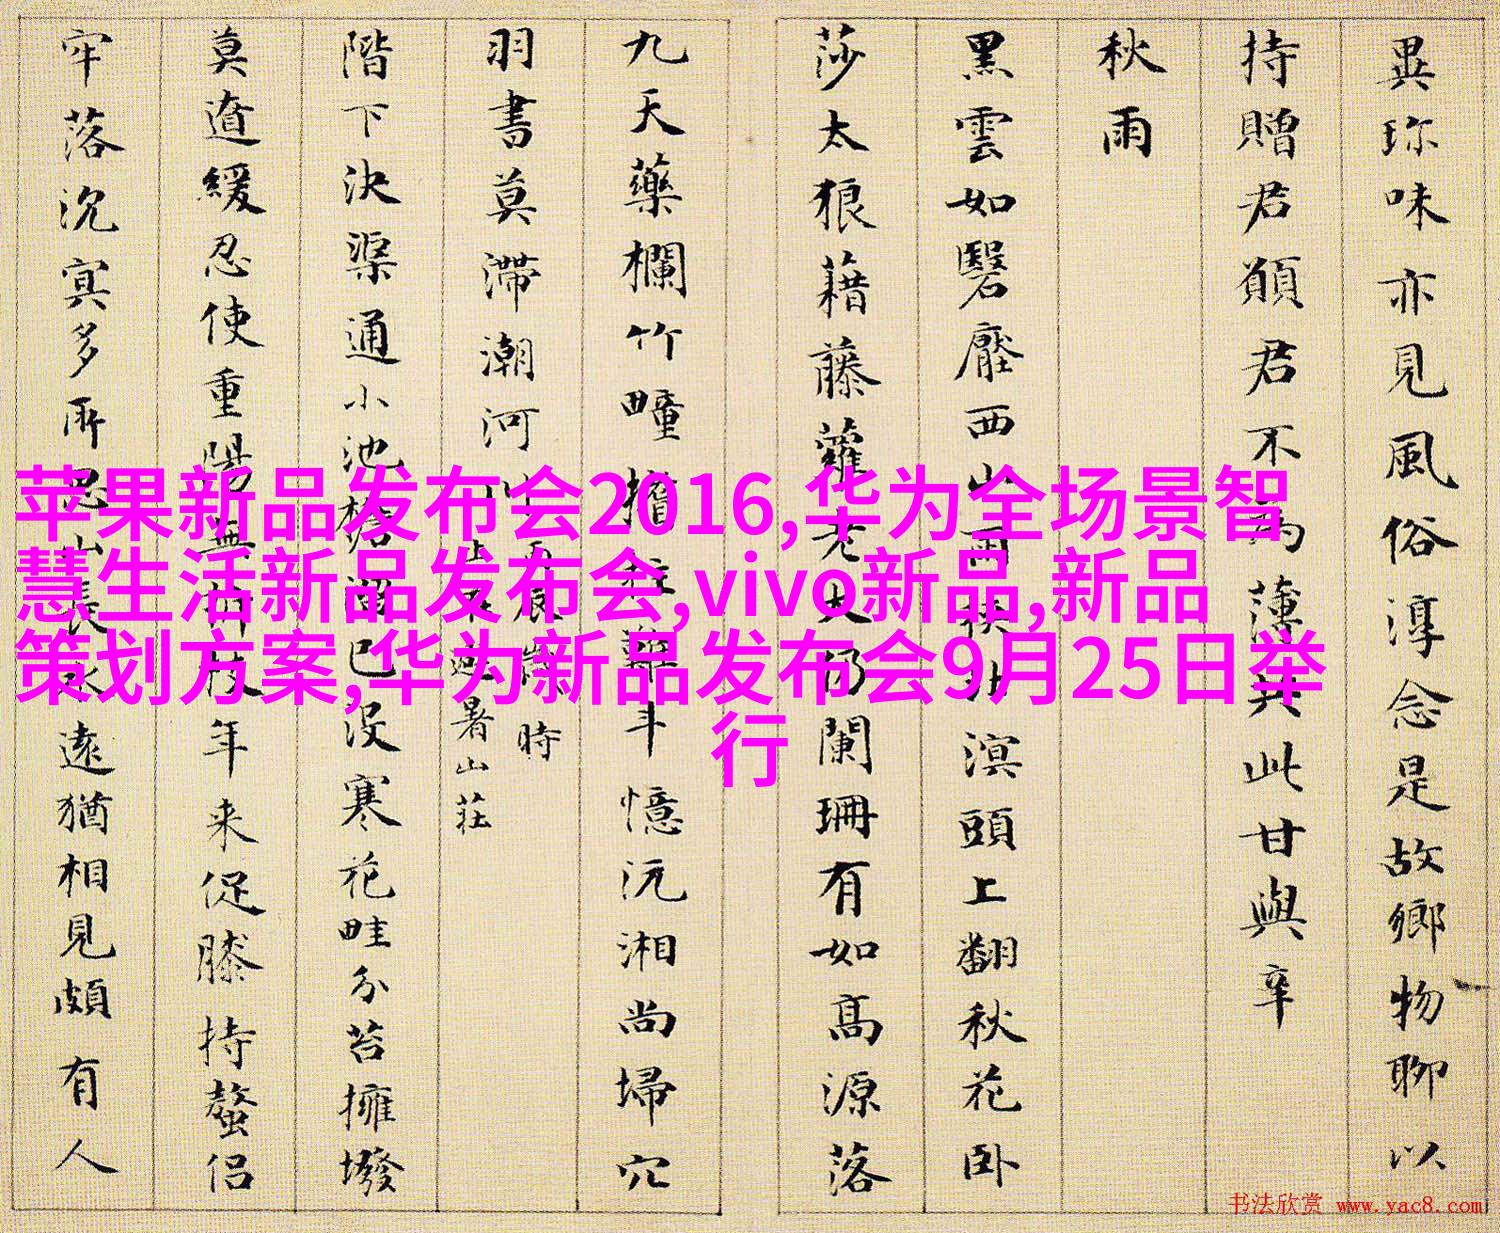 異珎味亦見風俗淳念是故鄉物聊以
持贈君願君不為薄共此甘與辛
秋雨
黑雲如翳壓西山雨後外溟頭上翻秋花卧
莎太狼藉藤蘿老大仍闌珊有如高源落
九天藥欄竹疃揩拄難斗憶沅湘尚埽穴
羽書莫滯潮河
時
暑山莊
階下決渠通小池已沒寒花畦分苔擁墢
莫遒緩忍使重陽無折枝年来促膝持螯侶
牢落沉冥多所思山長水遠猶相見頗有人
苹果新品发布会2016,华为全场景智
慧生活新品发布会,vivo新品,新品
策划方案,华为新品发布会9月25日举
行
书法欣赏 www.yac8.com